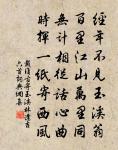 經年不見玉溪翁
百里江山萬里同
無計相從話心曲
時揮一紙寄西風
戴復古寄玉溪林逢吉
六首詞典網集